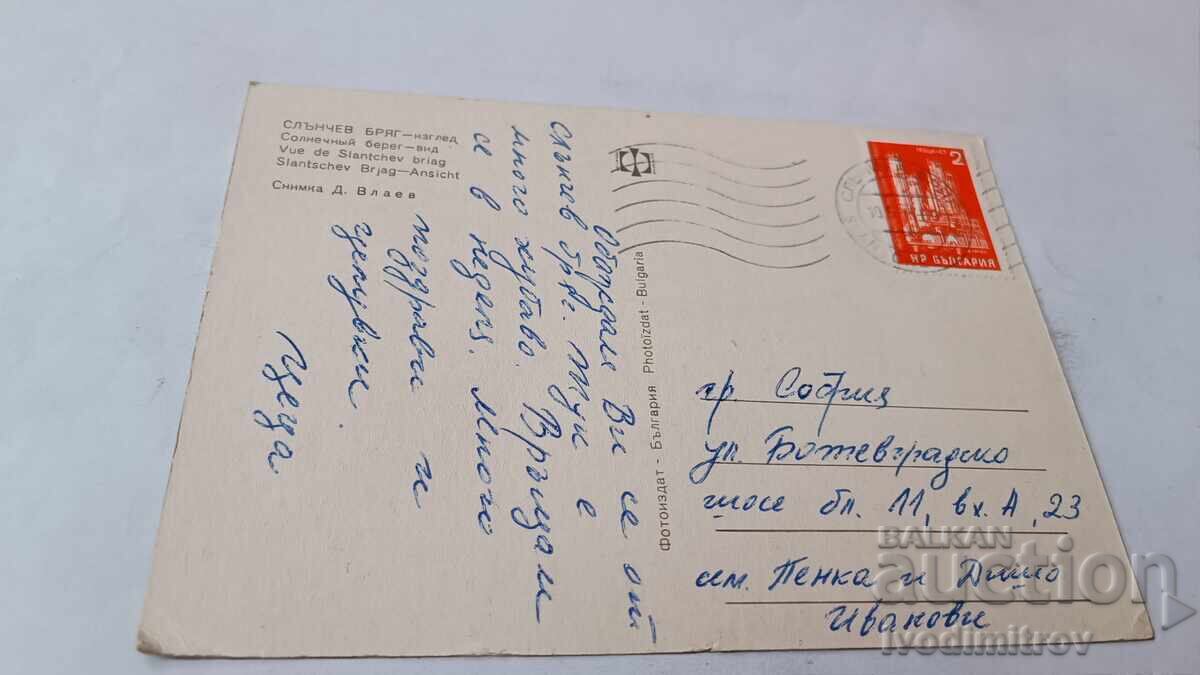 СЛЪНЧЕВ БРЯГ—изглед
Солнечный берег—вид
Vue de Slantchev briag
Slantschev Brjag—Ansicht
Снимка Д. Влаев
Обаждам Ви се от
слънчев бряг. Тук е
много хубаво. Връщам
се в неделя. Много
поздрави и
целувки.
Цеца.
Фотоиздат - България Photoizdat - Bulgaria
2
НР БЪЛГАРИЯ
гр. София
ул. Ботевградско
шосе бл. 11, вх. А, 23
сем. Пенка и Дишо
Иванови
BALKAN
auction
ivodimitrov